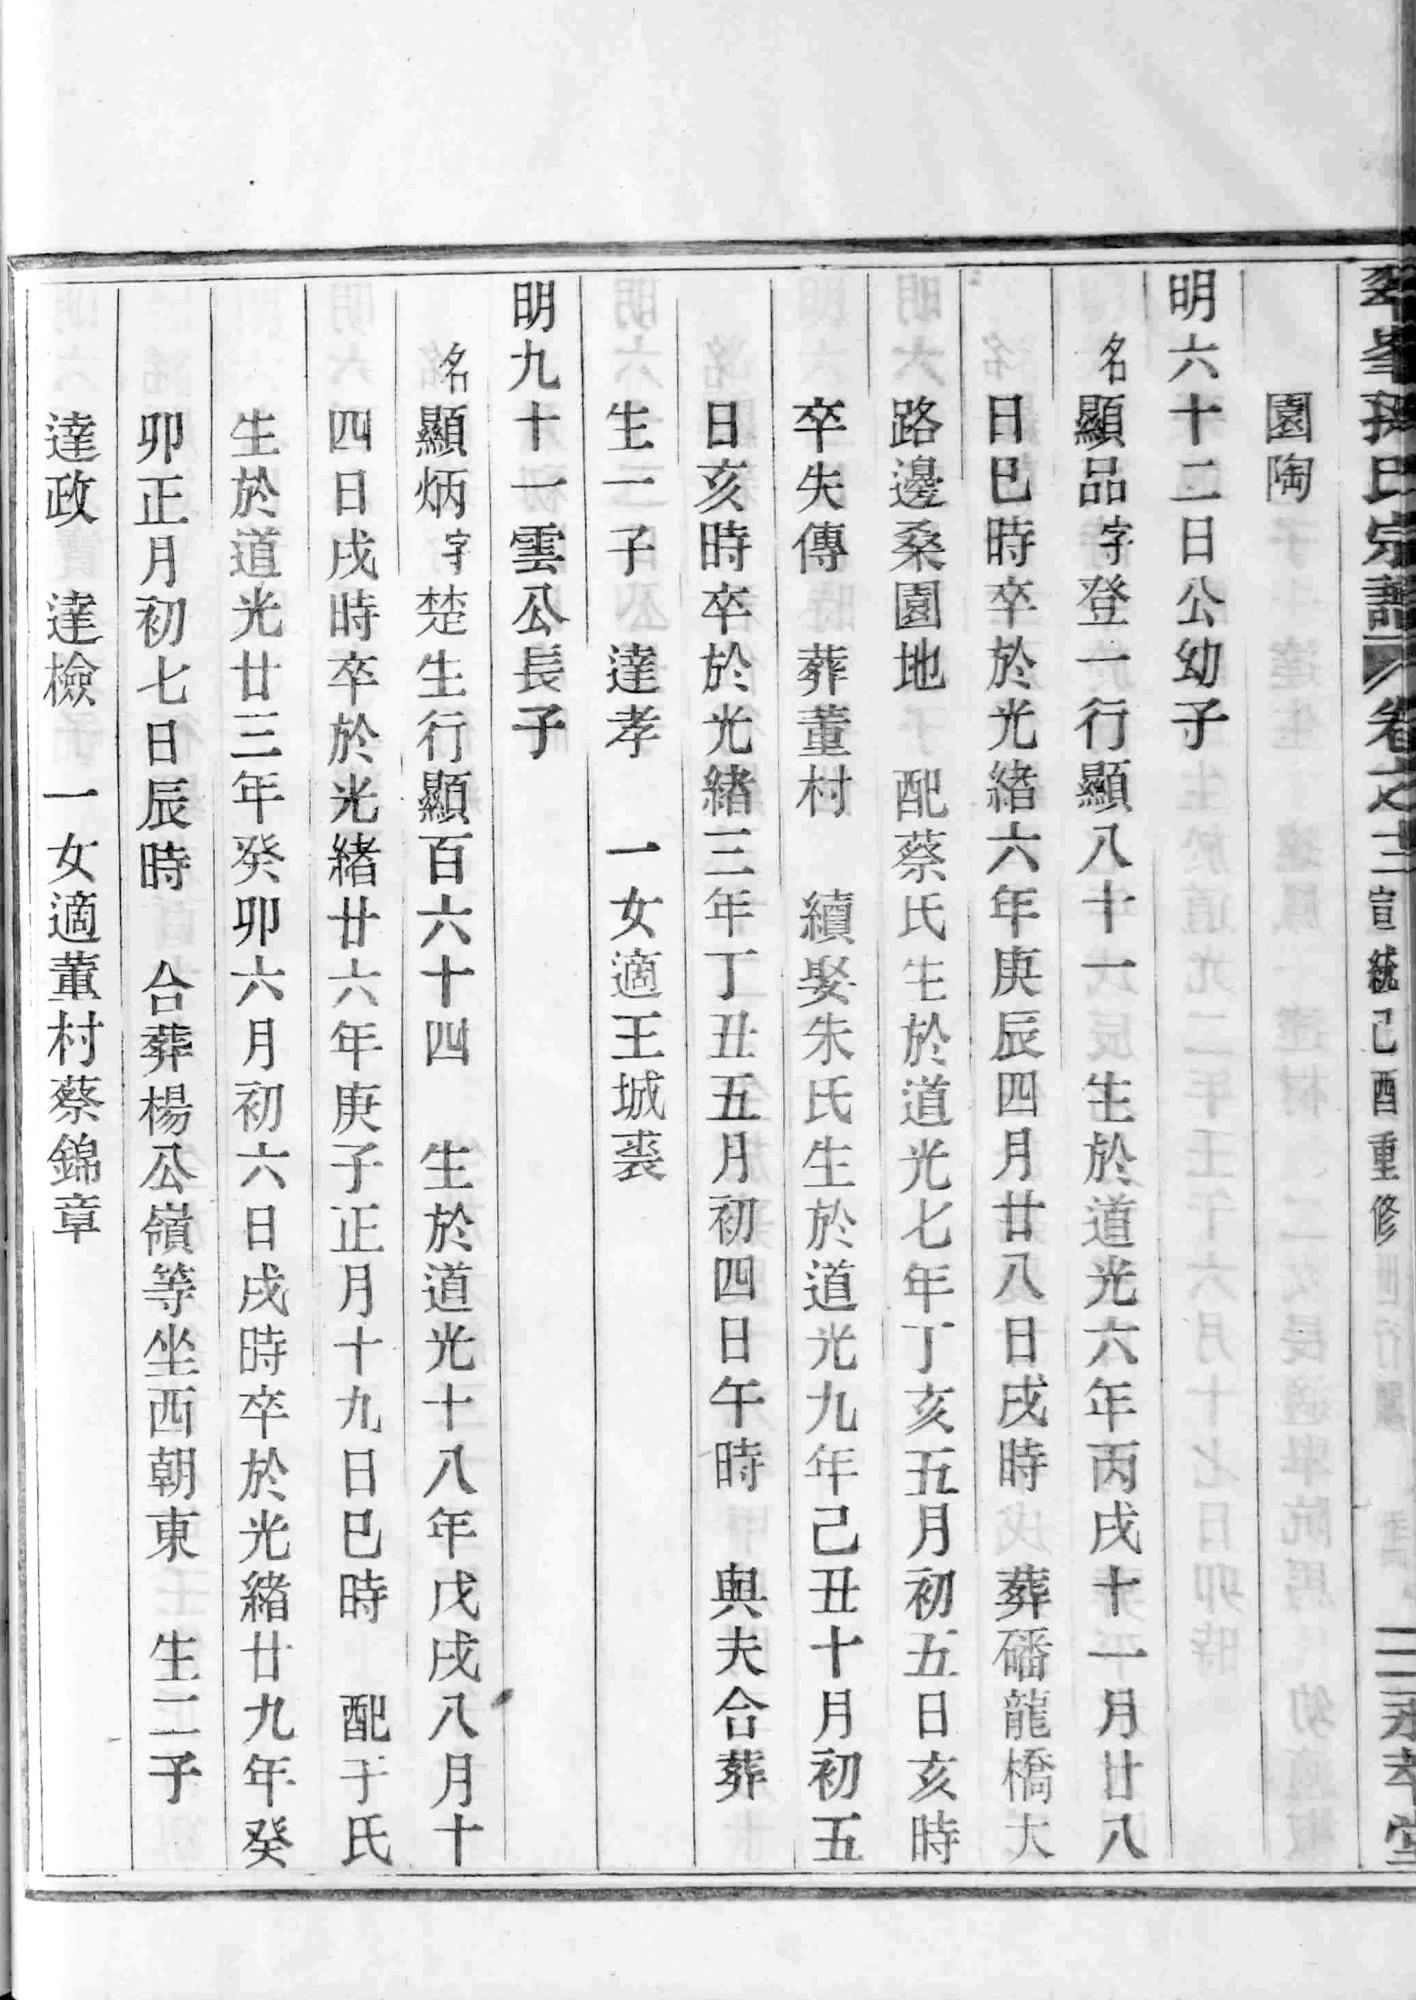 氏宗譜 卷之三 宣統己酉重修 二 永孝堂
園陶
明六十二日公幼子
名顯品字登一行顯八十一 生於道光六年丙戌十一月廿八
日巳時卒於光緒六年庚辰四月廿八日戌時 葬磻龍橋大
路邊桑園地 配蔡氏生於道光七年丁亥五月初五日亥時
卒失傳 葬董村 續娶朱氏生於道光九年己丑十月初五
日亥時卒於光緒三年丁丑五月初四日午時 與夫合葬
生一子 達孝 一女適王城裘
明九十一雲公長子
名顯炳字楚生行顯百六十四 生於道光十八年戊戌八月十
四日戌時卒於光緒廿六年庚子正月十九日巳時 配于氏
生於道光廿三年癸卯六月初六日戌時卒於光緒廿九年癸
卯正月初七日辰時 合葬楊公嶺等坐西朝東 生二子
達政 達檢 一女適董村蔡錦章